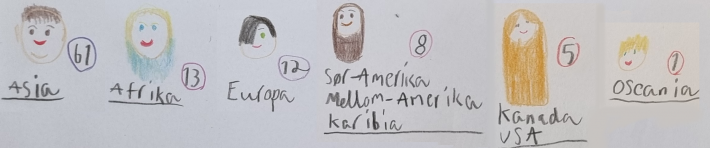 61
Asia
13
Afrika
12
Europa
8
Sør-Amerika
Mellom-Amerika
Karibia
5
Kanada
USA
1
Oscania